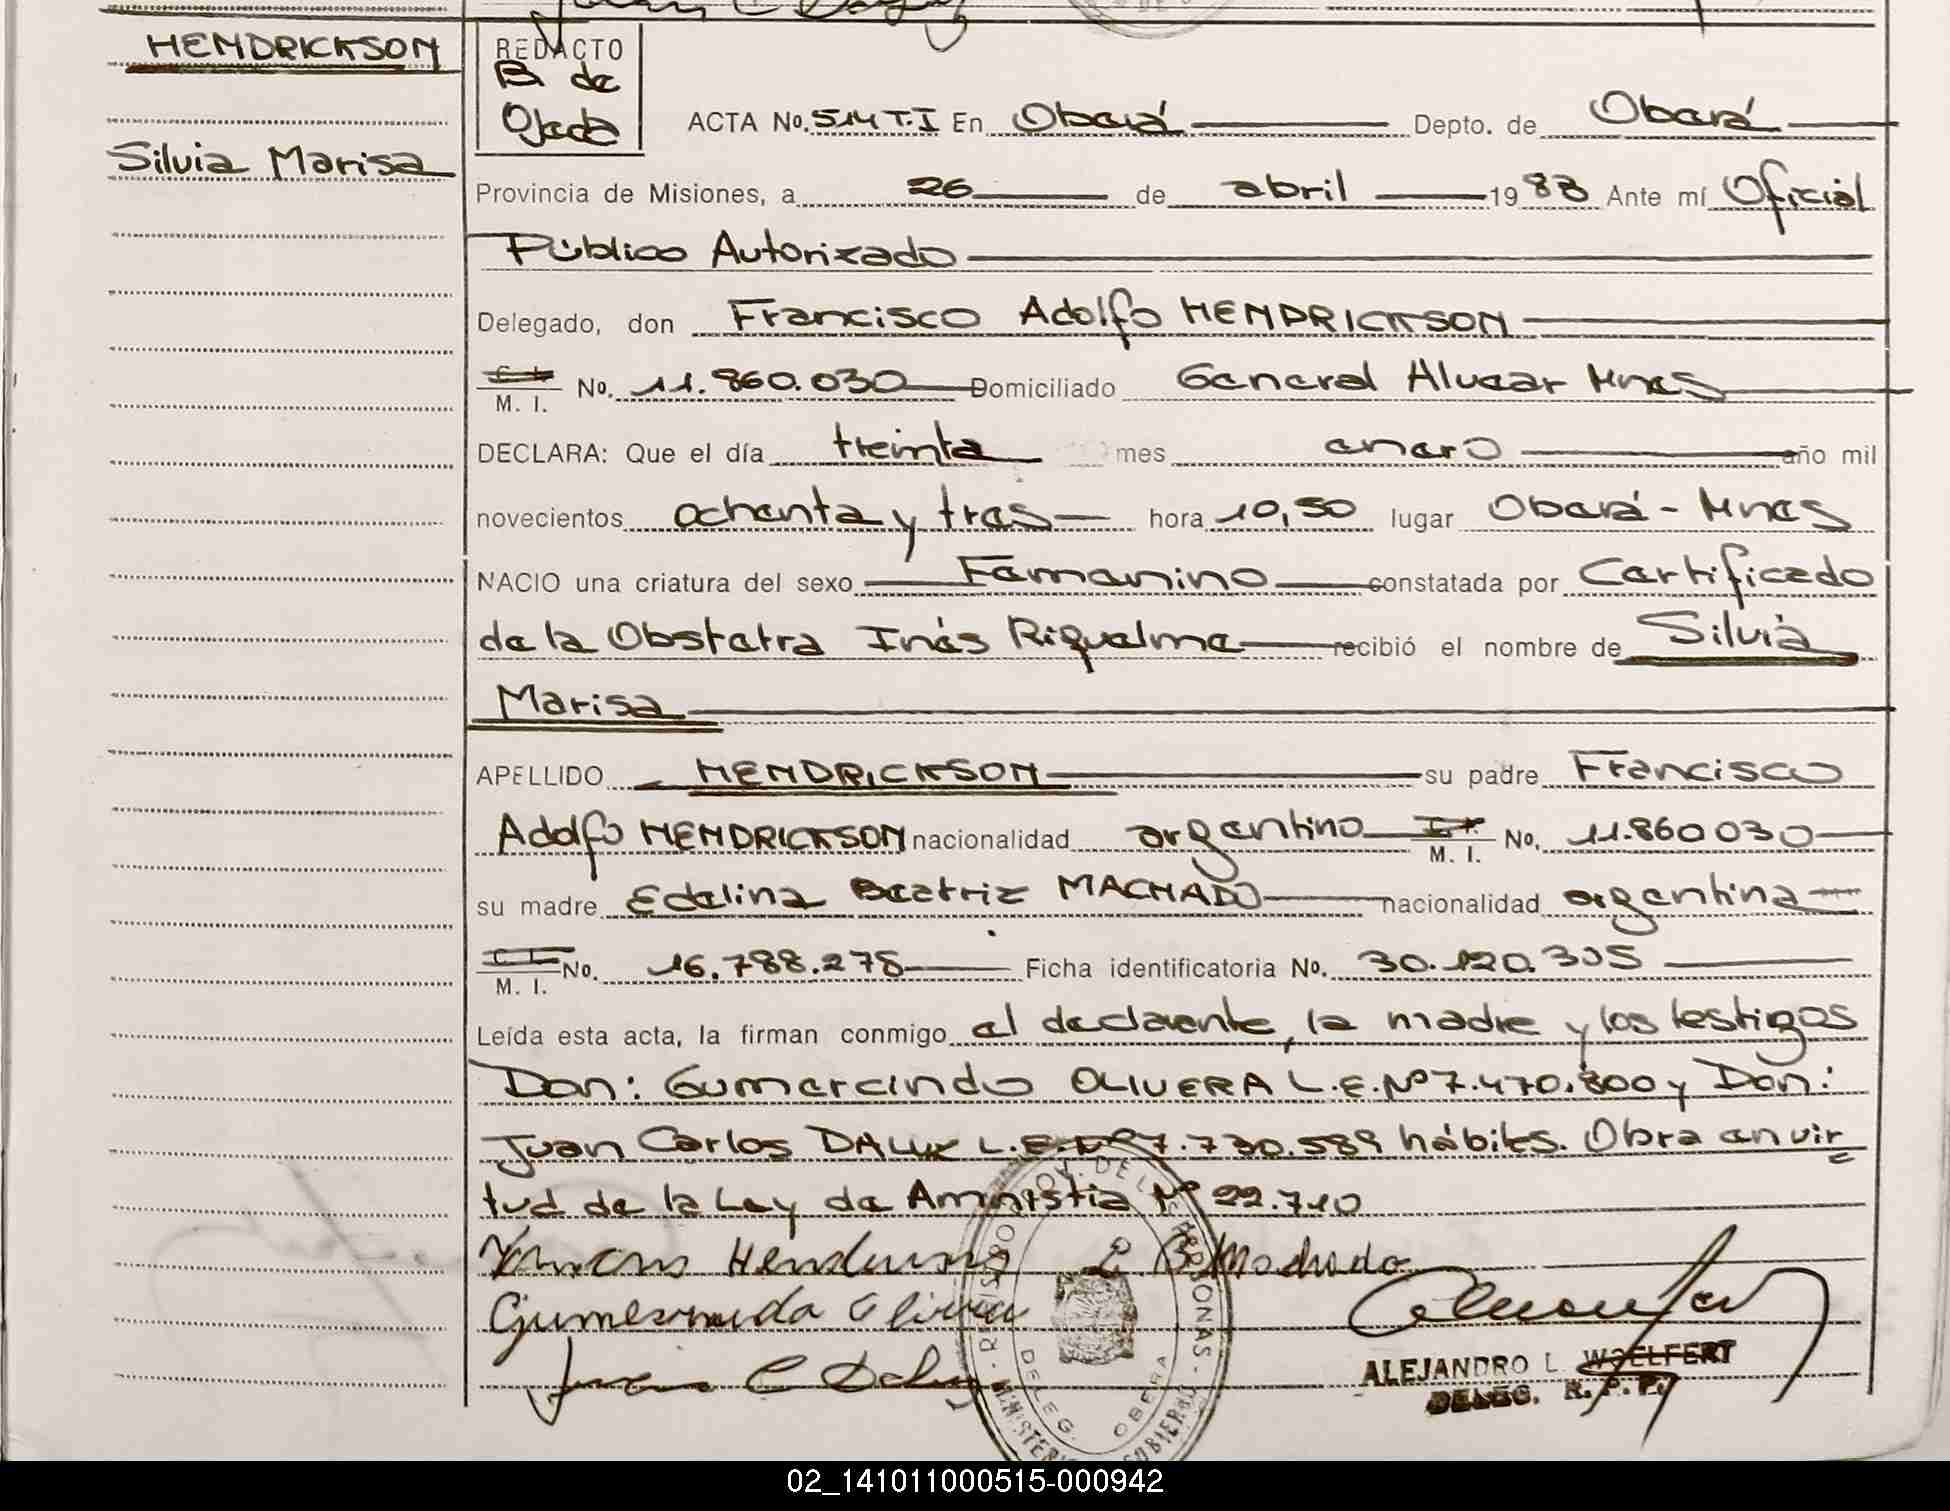 HENDRICKSON
Silvia Marisa
REDACTO
B. de
Ojeda
ACTA No. 514 T.I En Oberá Depto. de Oberá
Provincia de Misiones, a 26 de abril 1983 Ante mí Oficial
Público Autorizado
Delegado, don Francisco Adolfo HENDRICKSON
M. I. No. 11.860.030 Domiciliado General Alvear Mnes
DECLARA: Que el día treinta mes enero año mil
novecientos ochenta y tres hora 10,50 lugar Oberá - Mnes
NACIO una criatura del sexo Femenino constatada por Certificado
de la Obstetra Inés Riquelme recibió el nombre de Silvia
Marisa
APELLIDO HENDRICKSON su padre Francisco
Adolfo HENDRICKSON nacionalidad argentino M. I. No. 11.860030
su madre Edelina Beatriz MACHADO nacionalidad argentina
M. I. No. 16.788.278 Ficha identificatoria No. 30.120.305
Leída esta acta, la firman conmigo el declarante, la madre y los testigos
Don: Gumercindo OLIVERA L.E. Nº 7.470.800 y Don:
Juan Carlos L.E. Nº 7.730.589 hábiles. Obra en vir
tud de la Ley de Amnistia Nº 22.710
E B Machado
ALEJANDRO L. WOELFERT
DELEG. R. P. P.
DELEG. OBERA
02_141011000515-000942